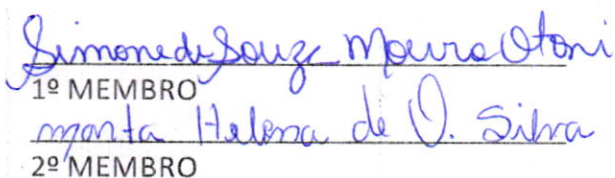 Simone de Souza Moura Otoni
1º MEMBRO
Marta Helena de O. Silva
2º MEMBRO